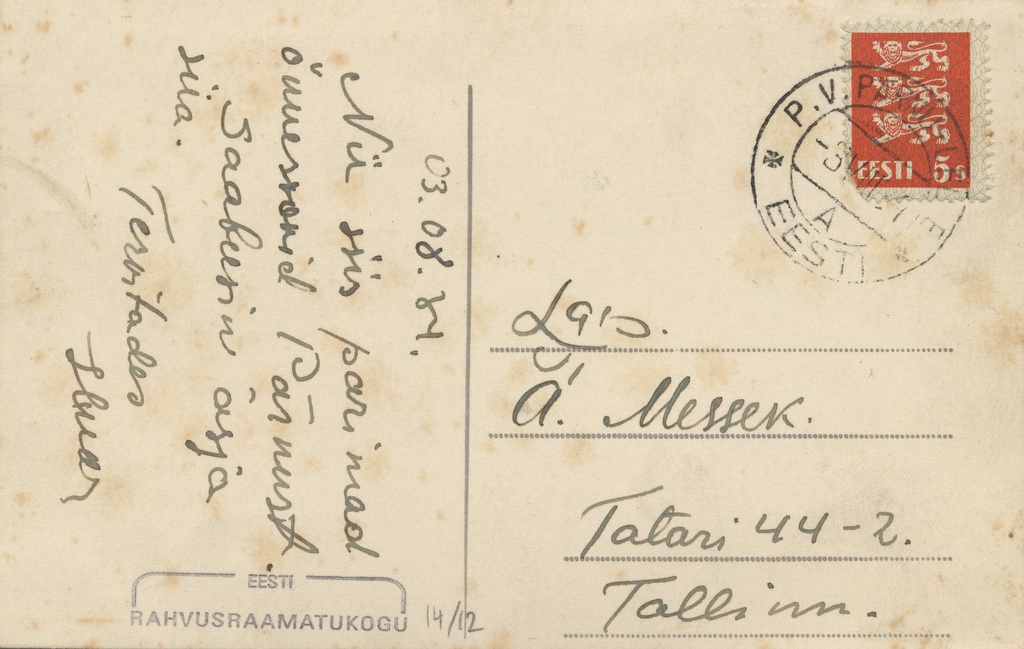 03.08.34.
Nii siis parimad
õnnesoovid Pärnust.
Saabusin äsja
siia.
Tervitades
EESTI
RAHVUSRAAMATUKOGU 14/12
EESTI 5 s
P.V.
EESTI
A
Lgp.
A. Messek.
Tatari 44-2.
Tallinn.